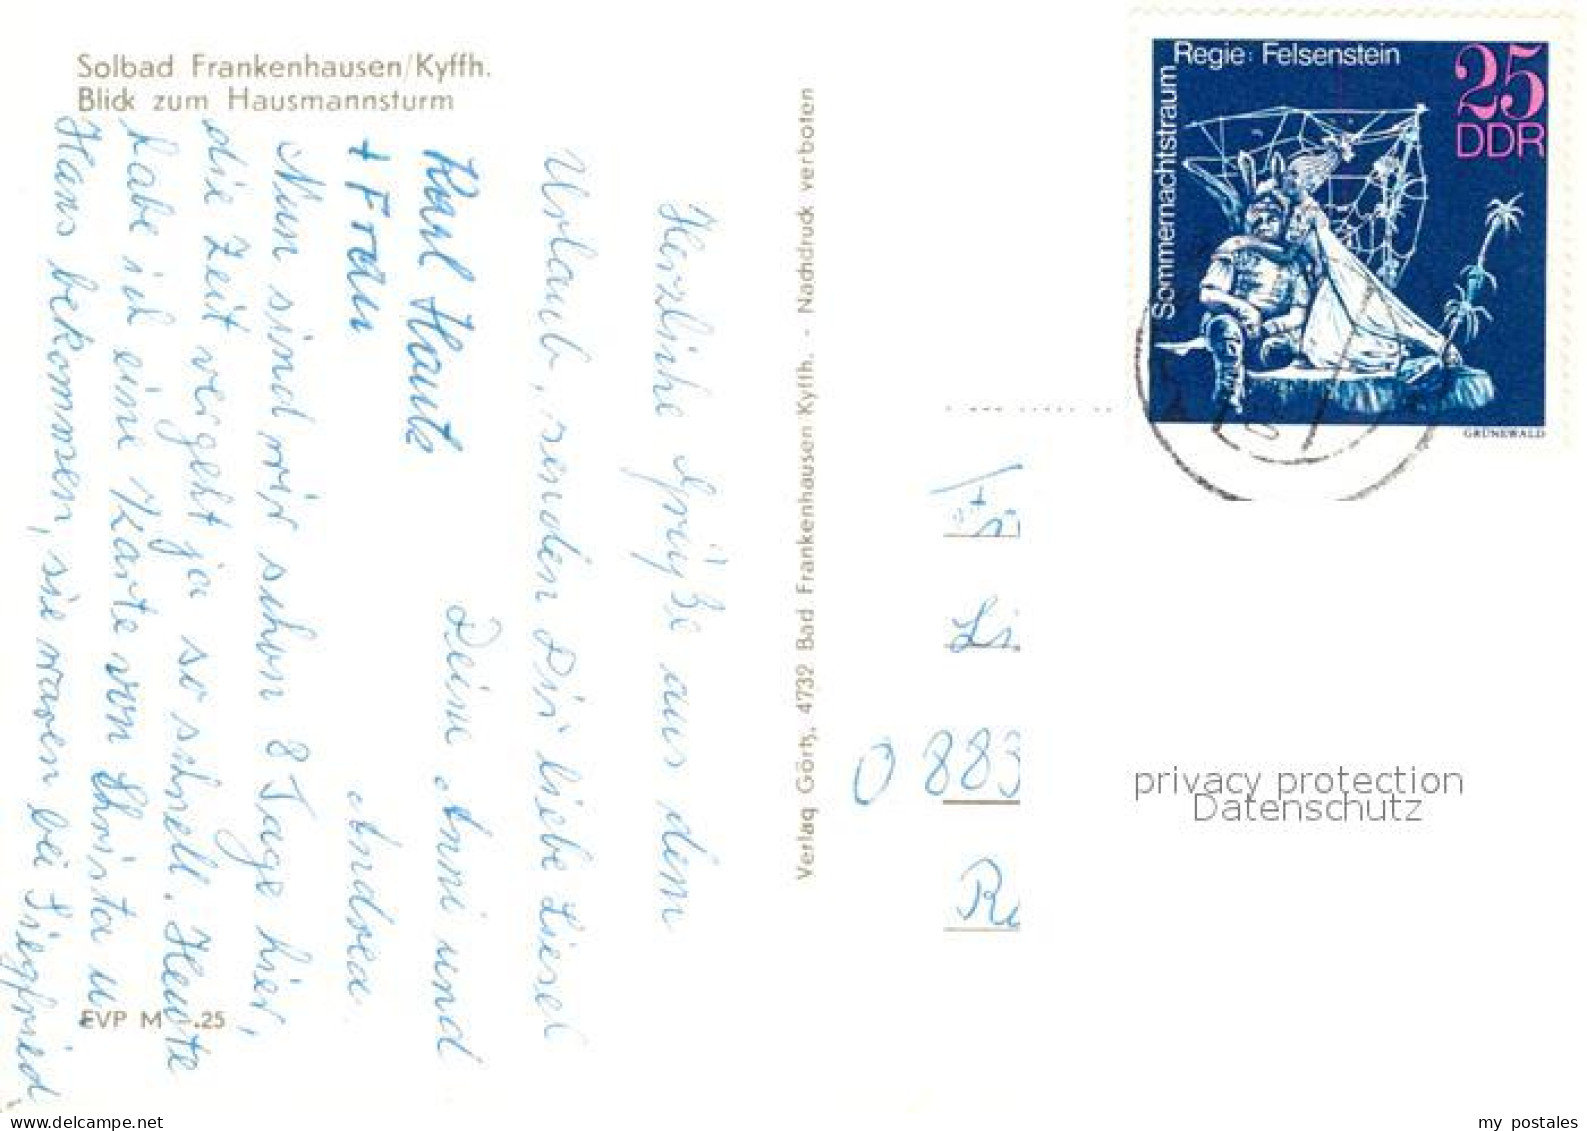 Solbad Frankenhausen/Kyffh.
Blick zum Hausmannsturm
Herzliche Grüße aus dem
Urlaub, senden Dir liebe Liesel
Deine Anni und
Andrea
+ Frau
Nun sind wir schon 8 Tage hier,
die Zeit vergeht ja so schnell. Heute
habe ich eine Karte von Christa u.
Hans bekommen, sie waren bei Siegfried
EVP M .25
Verlag Görtz, 4732 Bad Frankenhausen/Kyffh. - Nachdruck verboten
Sommernachtstraum
Regie: Felsenstein
25
DDR
GRÜNEWALD
Li
O 883
privacy protection
Datenschutz
my postales